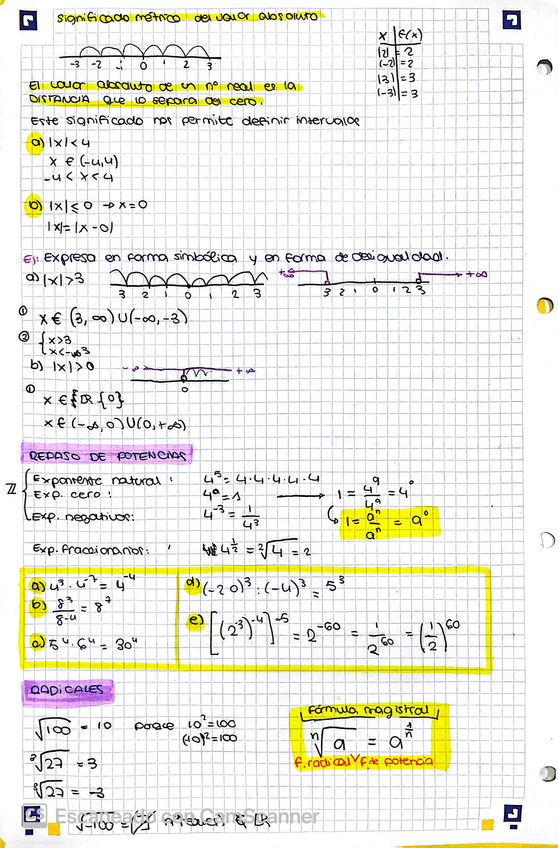 significado métrico del valor absoluto
-3 -2 -1 0 1 2 3
x | f(x)
|2| = 2
|-2| = 2
|3| = 3
|-3| = 3
El valor absoluto de un nº real es la
DISTANCIA que lo separa del cero.
Este significado nos permite definir intervalos
a) |x| < 4
x ∈ (-4,4)
-4 < x < 4
b) |x| ≤ 0 → x = 0
|x| = |x - 0|
Ej: Expresa en forma simbólica y en forma de desigualdad.
a) |x| > 3
3 2 1 0 1 2 3
+∞
3 2 1 0 1 2 3
① x ∈ (3, ∞) ∪ (-∞, -3)
② { x > 3
x < -3
b) |x| > 0
-∞ +∞
0
① x ∈ {ℝ {0}
x ∈ (-∞, 0) ∪ (0, +∞)
REPASO DE POTENCIAS
ℤ { Exponente natural: 4⁵ = 4·4·4·4·4
Exp. cero: 4⁰ = 1 → 1 = 4⁹/4⁹ = 4⁰
Exp. negativos: 4⁻³ = 1/4³
1 = aⁿ/aⁿ = a⁰
Exp. fraccionarios: 4^(1/2) = ²√4 = 2
a) 4³ · 4⁻⁷ = 4⁻⁴
b) 8³/8⁻⁴ = 8⁷
c) 5⁴ · 6⁴ = 30⁴
d) (-20)³ : (-4)³ = 5³
e) [(2³)⁻⁴]⁻⁵ = 2⁻⁶⁰ = 1/2⁶⁰ = (1/2)⁶⁰
RADICALES
√100 = 10 porque 10² = 100
(-10)² = 100
³√27 = 3
³√27 = -3
Fórmula magistral
ⁿ√a = a^(1/n)
F. radical y f. de potencia
CS Escaneado con CamScanner
√-100 =